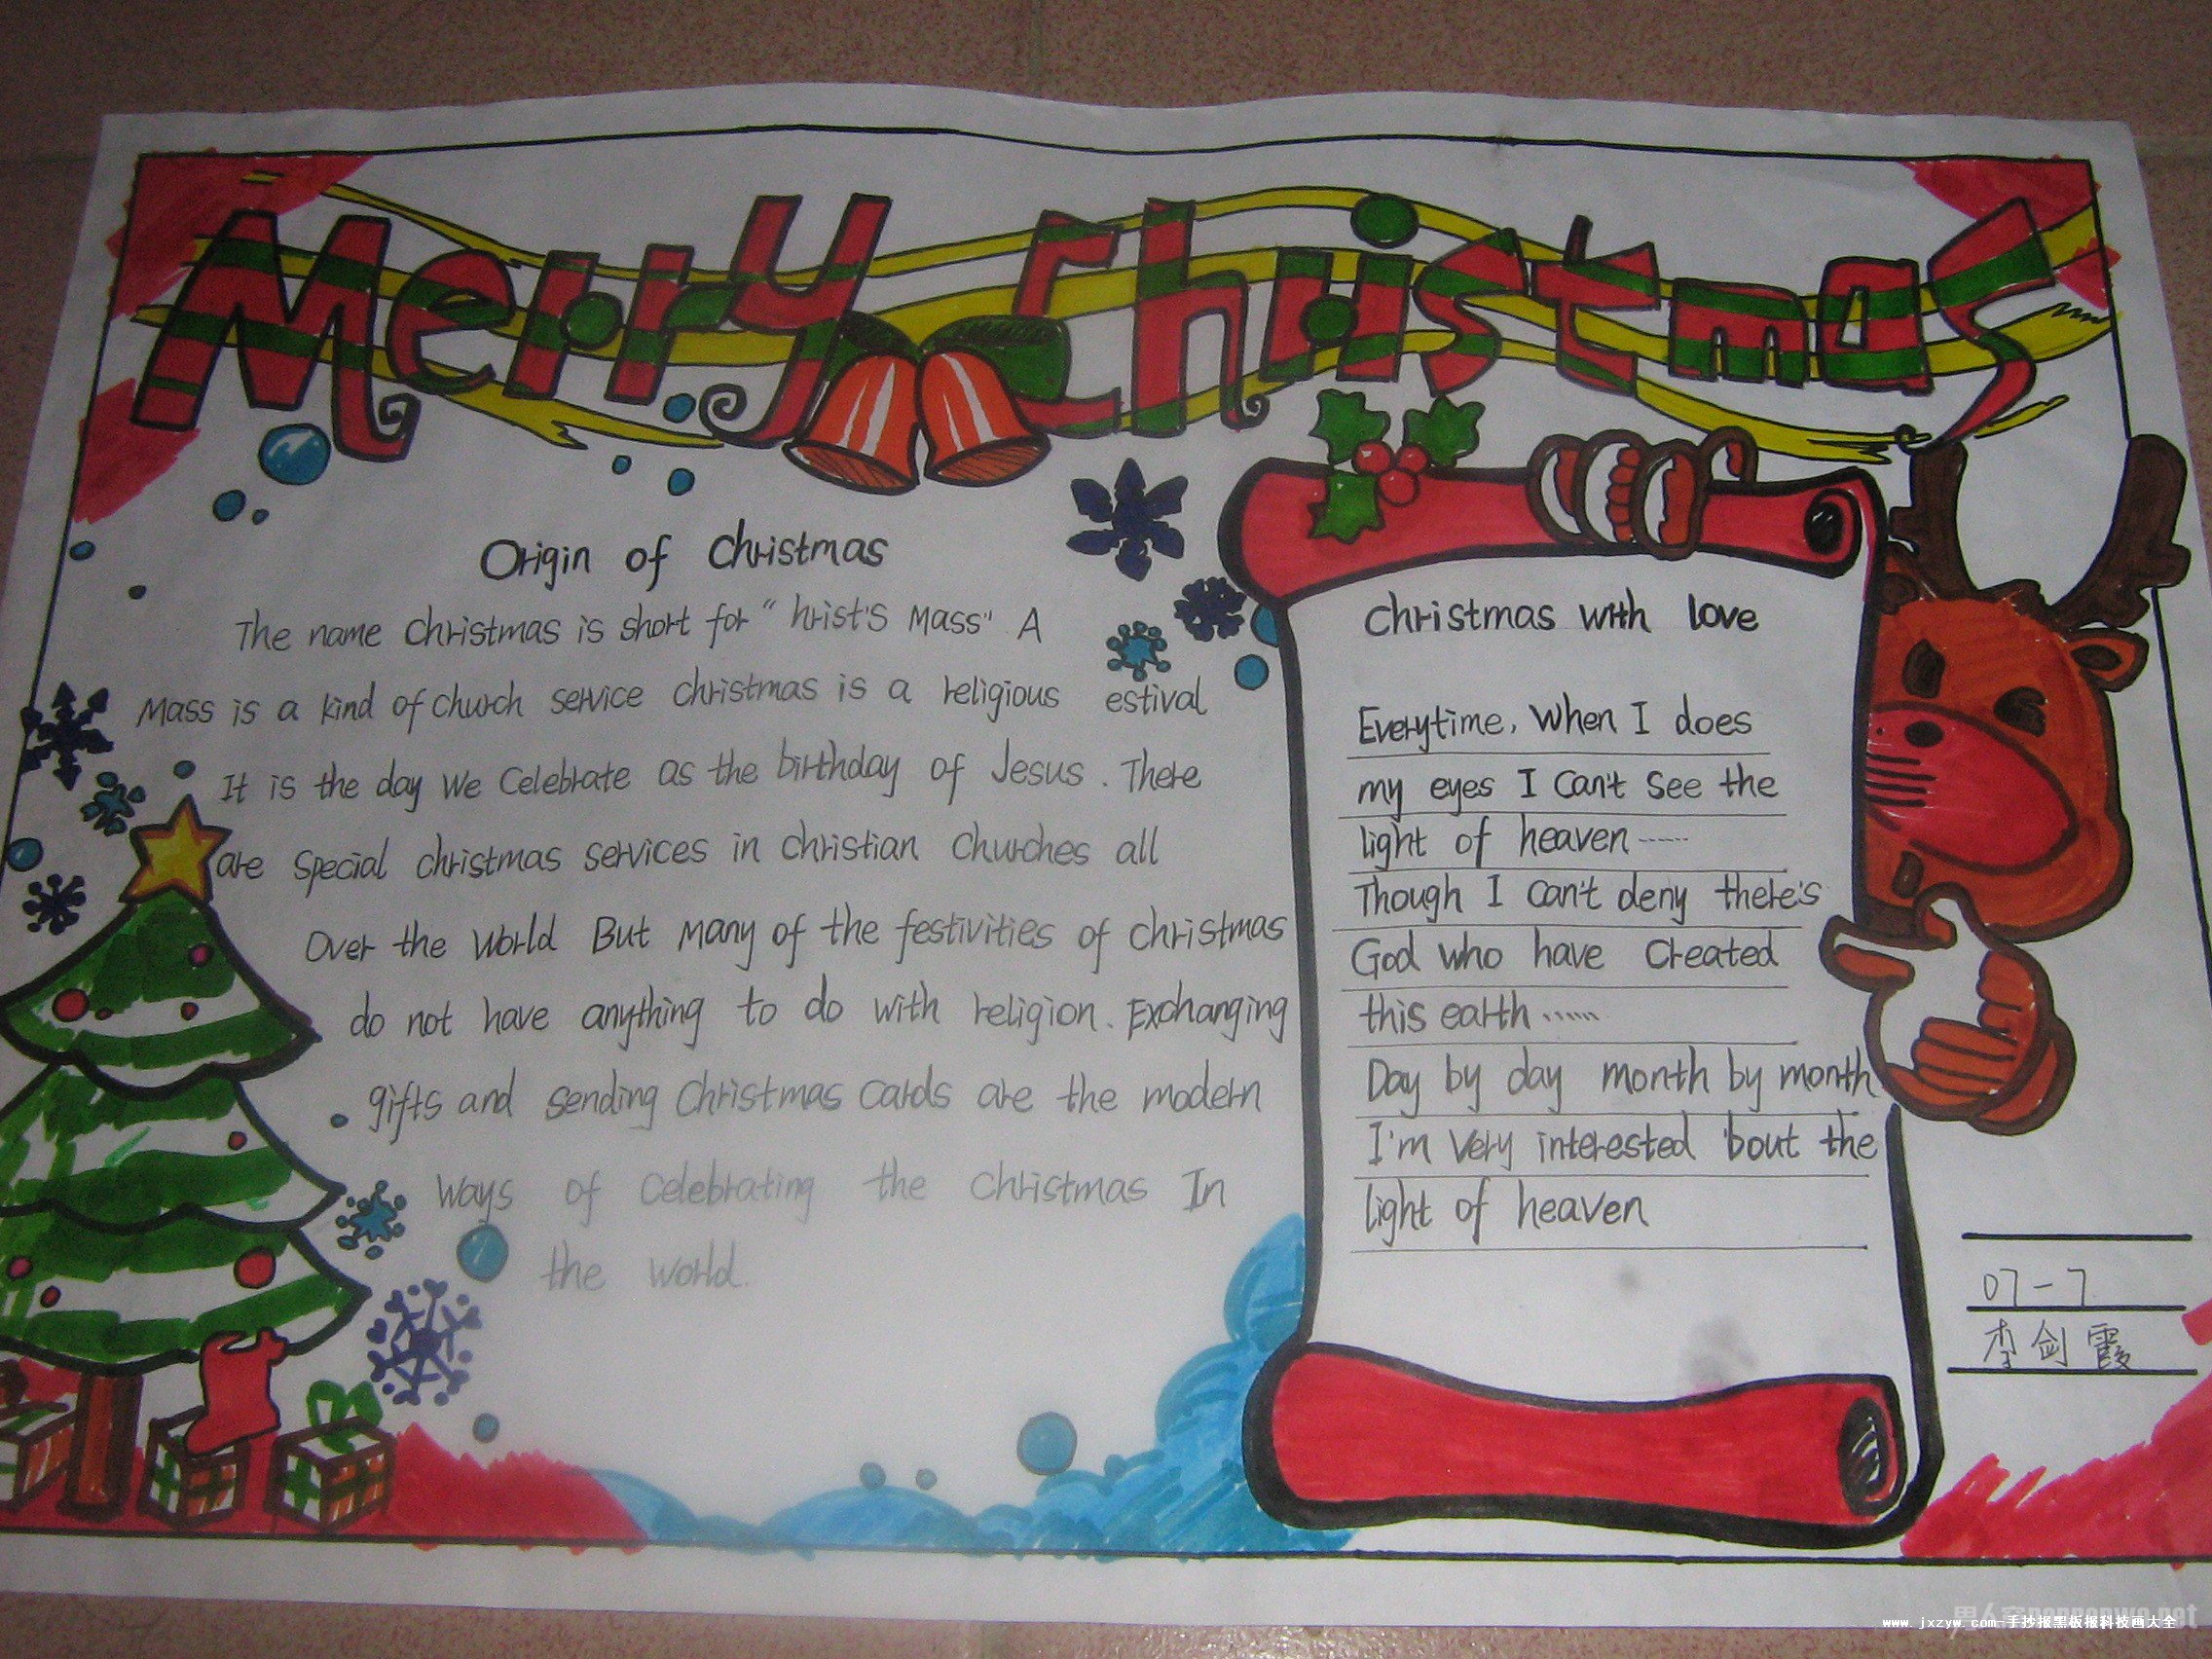 Merry Christmas
Origin of Christmas
The name Christmas is short for "hrist's Mass" A
Mass is a kind of church service christmas is a religious estival
It is the day we celebrate as the birthday of Jesus. There
are special christmas services in christian churches all
Over the world But many of the festivities of christmas
do not have anything to do with religion. Exchanging
gifts and sending christmas cards are the modern
ways of celebrating the christmas In
the world.
Christmas with love
Everytime, when I does
my eyes I can't see the
light of heaven······
Though I can't deny there's
God who have created
this earth······
Day by day month by month
I'm very interested 'bout the
light of heaven
07-7
李剑霞
www.jxzyw.com 手抄报黑板报科技画大全